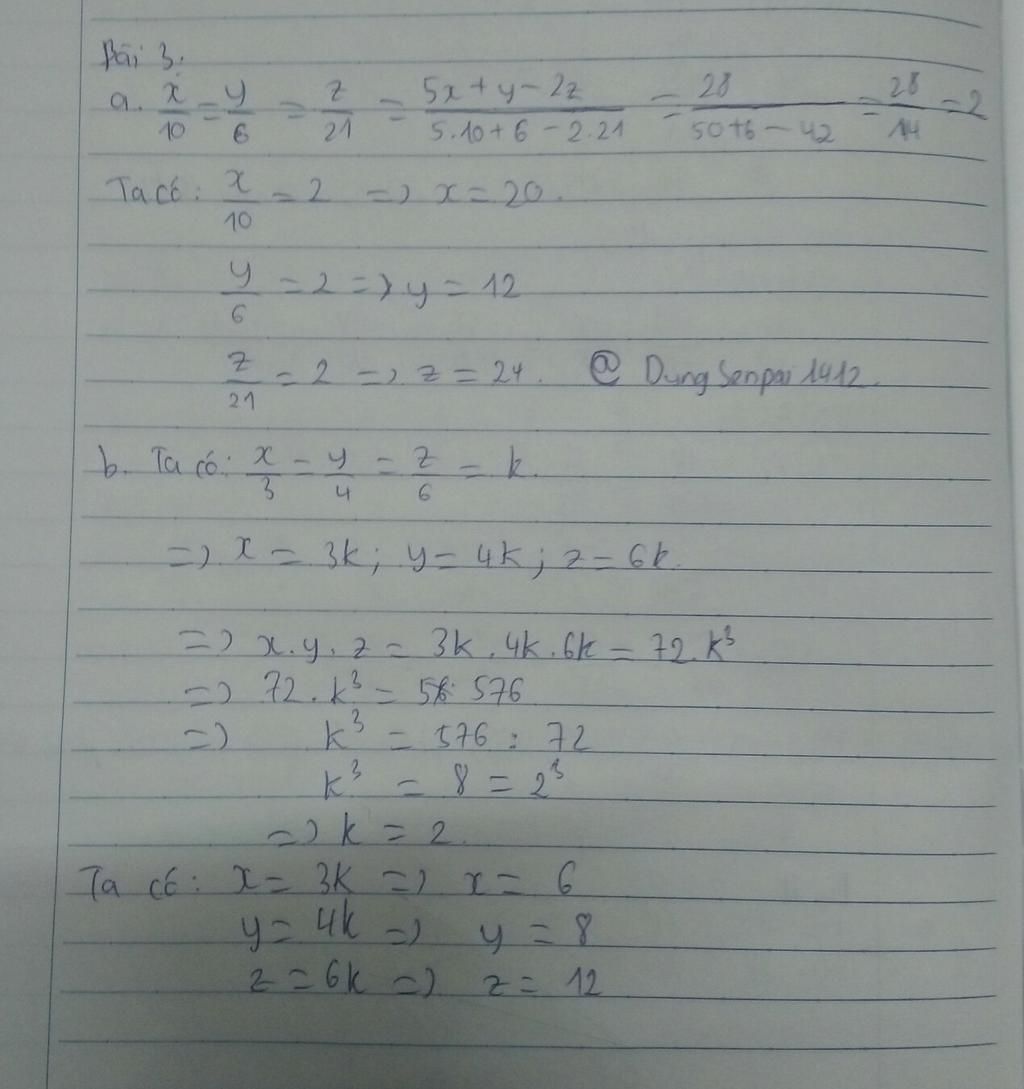 Bài 3.
a. x/10 = y/6 = z/21 = (5x + y - 2z)/(5.10 + 6 - 2.21) = 28/(50+6 - 42) = 28/14 = 2
Ta có: x/10 = 2 => x = 20.
y/6 = 2 => y = 12
z/21 = 2 => z = 24. @ DungSenpai1412.
b. Ta có: x/3 = y/4 = z/6 = k.
=> x = 3k; y = 4k; z = 6k.
=> x.y.z = 3k.4k.6k = 72.k³
=> 72.k³ = 576
=> k³ = 576 : 72
k³ = 8 = 2³
=> k = 2.
Ta có: x = 3k => x = 6
y = 4k => y = 8
z = 6k => z = 12